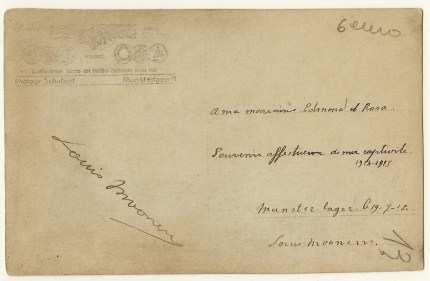 6 euro
Photogr. Schubert, Munsterlager
A ma marraine Edmond et Rosa.
Souvenir affectueux de ma captivité
1914-1915
Munster-lager le 19-7-15.
Louis Moonen
Louis Moonen